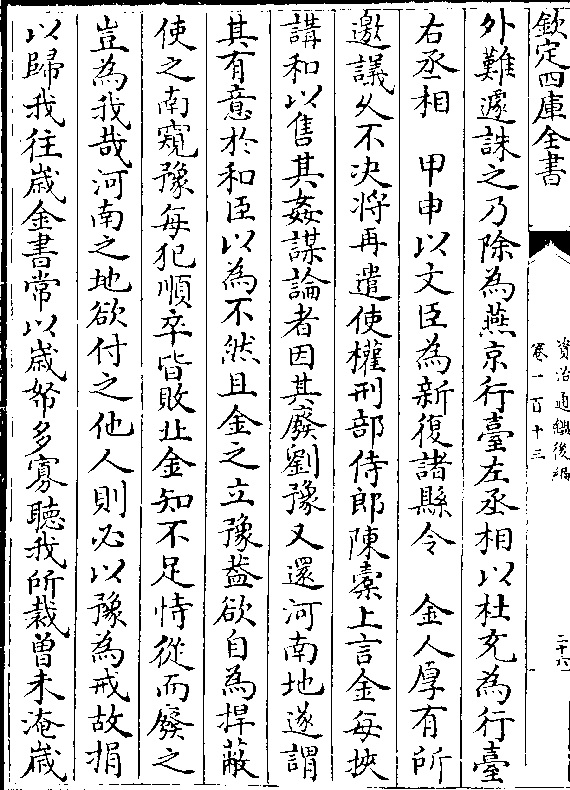 欽定四庫全書
資治通鑑後編
卷一百十三
二十六
外難遽誅之乃除為燕京行臺左丞相以杜充為行臺
右丞相　甲申以文臣為新復諸縣令　金人厚有所
邀議久不决將再遣使權刑部侍郎陳橐上言金每挾
講和以售其姦謀論者因其廢劉豫又還河南地遂謂
其有意於和臣以為不然且金之立豫葢欲自為捍蔽
使之南窺豫每犯順卒皆敗北金知不足恃從而廢之
豈為我哉河南之地欲付之他人則必以豫為戒故捐
以歸我往嵗金書常以嵗帑多寡聽我所裁曾未淹嵗